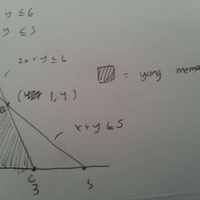 y ≤ 6
y ≤ 5
2x + y ≤ 6
(1,4)
= yang mema
x + y ≤ 5
C
3
5